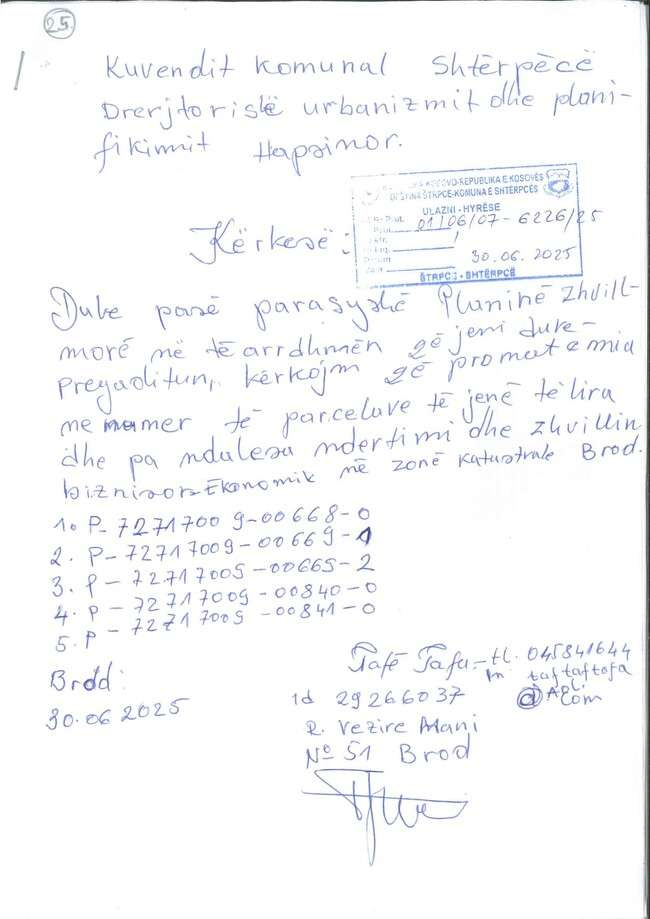 25.
Kuvendit komunal Shtërpëcë
Drerjtorisë urbanizmit dhe plani-
fikimit Hapsinor.
KOSOVO-REPUBLIKA E KOSOVËS
ŠTRPCE-KOMUNA E SHTËRPCËS
ULAZNI - HYRËSE
01/06/07 - 6226/25
30.06.2025
ŠTRPCE - SHTËRPCË
Kërkesë:
Duke pasë parasyshë Planinë Zhvill-
morë në të arrdhmën që jeni duke-
pregaditun, kërkojm që promat e mia
me numer të parcelave të jenë të lira
dhe pa ndalesa ndertimi dhe zhvillin
biznisor-Ekonomik në zonë katastrale Brod.
1. P-72717009-00668-0
2. P-72717009-00669-1
3. P-72717009-00669-2
4. P-72717009-00840-0
5. P-72717009-00841-0
Tafë Tafa-tl. 045841644
taftaftofa
@AOL.com
Brod:
30.06 2025
id 29266037
R. Vezire Mani
No 51 Brod